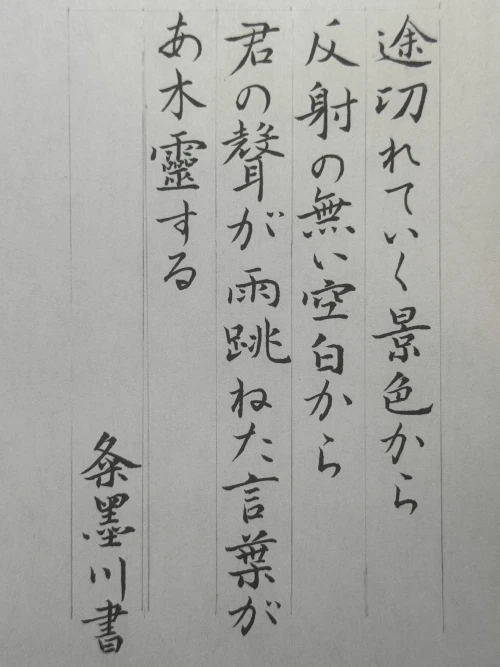 途切れていく景色から
反射の無い空白から
君の聲が雨跳ねた言葉が
あ木靈する
粂墨川書